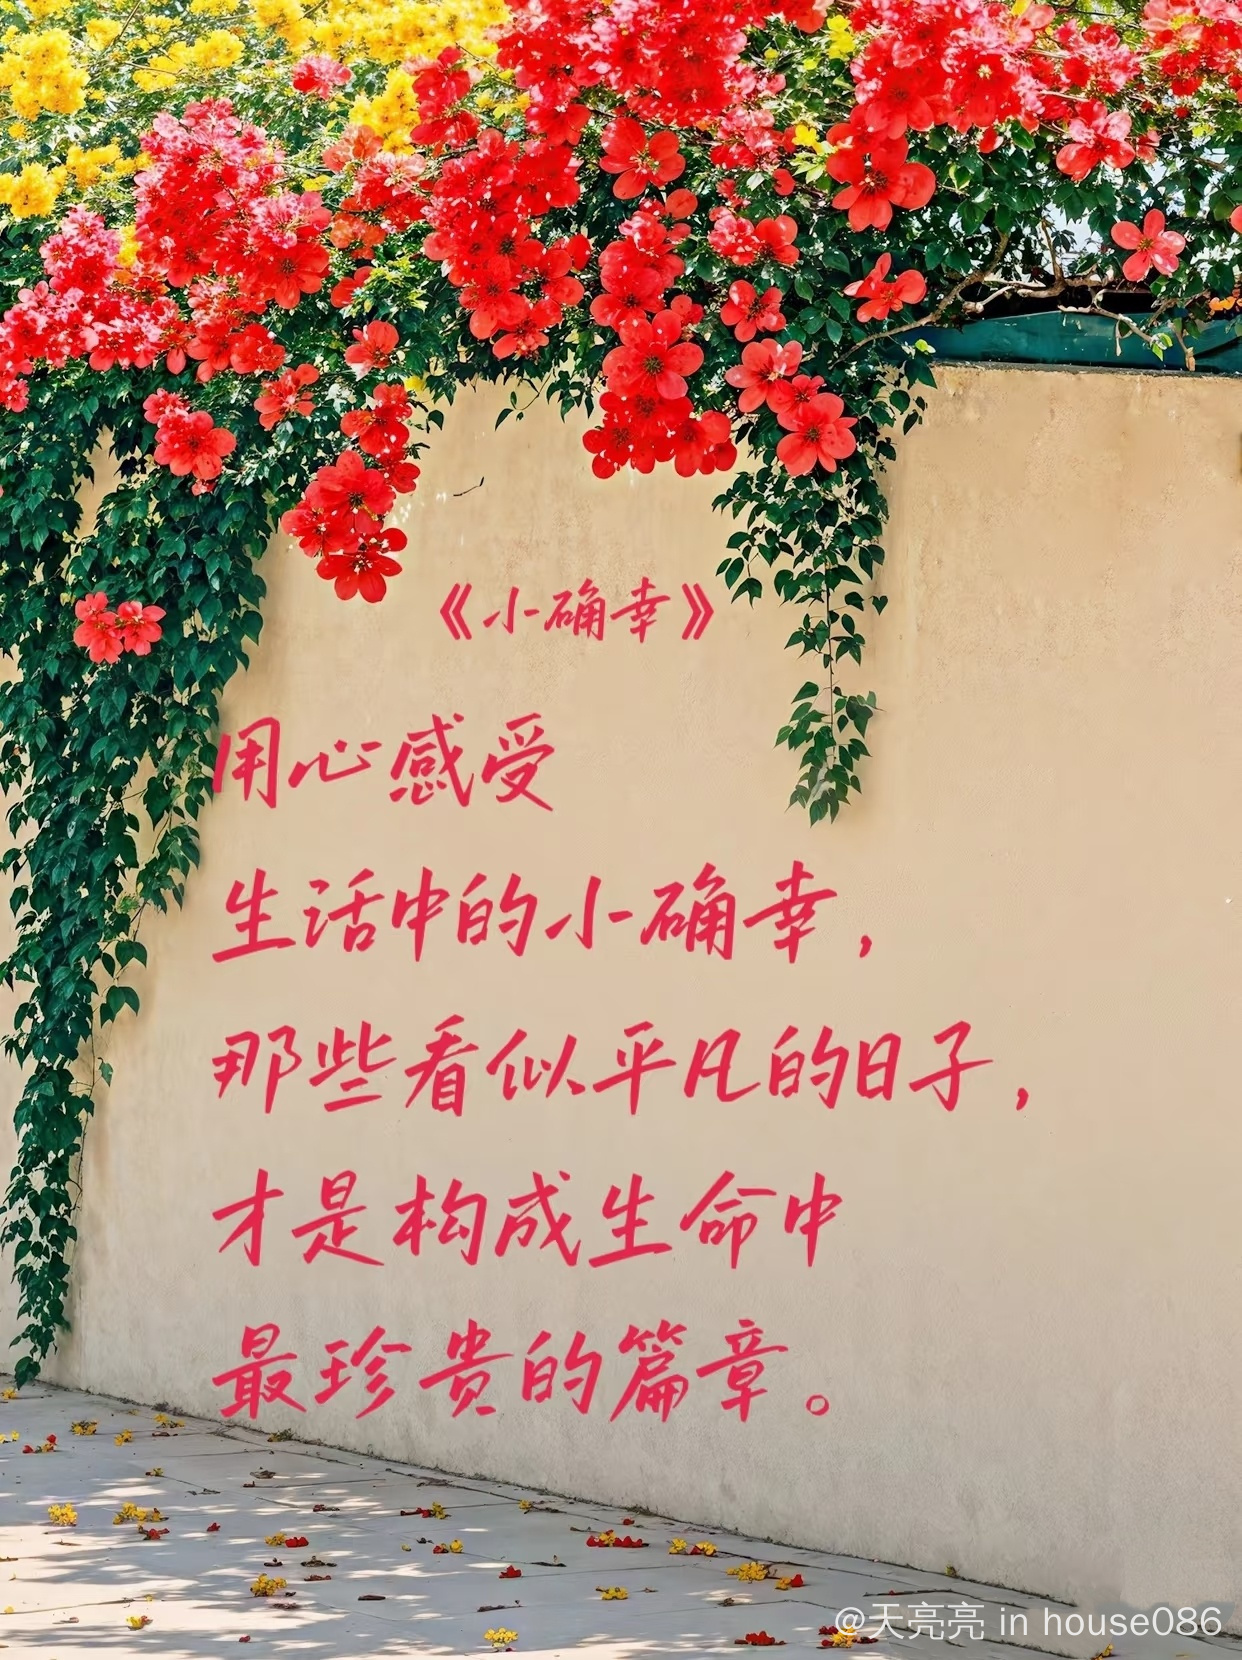 《小确幸》
用心感受
生活中的小确幸，
那些看似平凡的日子，
才是构成生命中
最珍贵的篇章。
@天亮亮 in house086